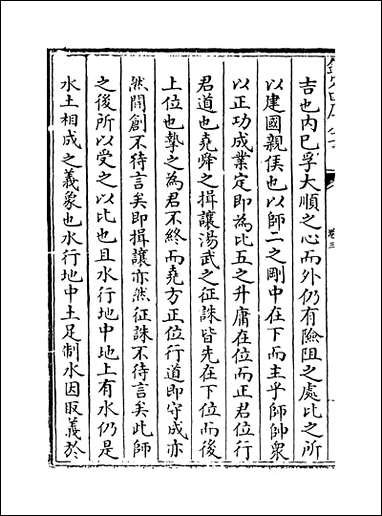 吉也内已孚大順之心而外仍有險阻之處比之所
以建國親侯也以師二之剛中在下而主乎師帥衆
以正功成業定即為比五之升庸在位而正君位行
君道也堯舜之揖讓湯武之征誅皆先在下位而後
上位也摯之為君不終而堯方正位行道即守成亦
然開創不待言矣即揖讓亦然征誅不待言矣此師
之後所以受之以比也且水行地中地上有水仍是
水土相成之義象也水行地中土足制水因取義於